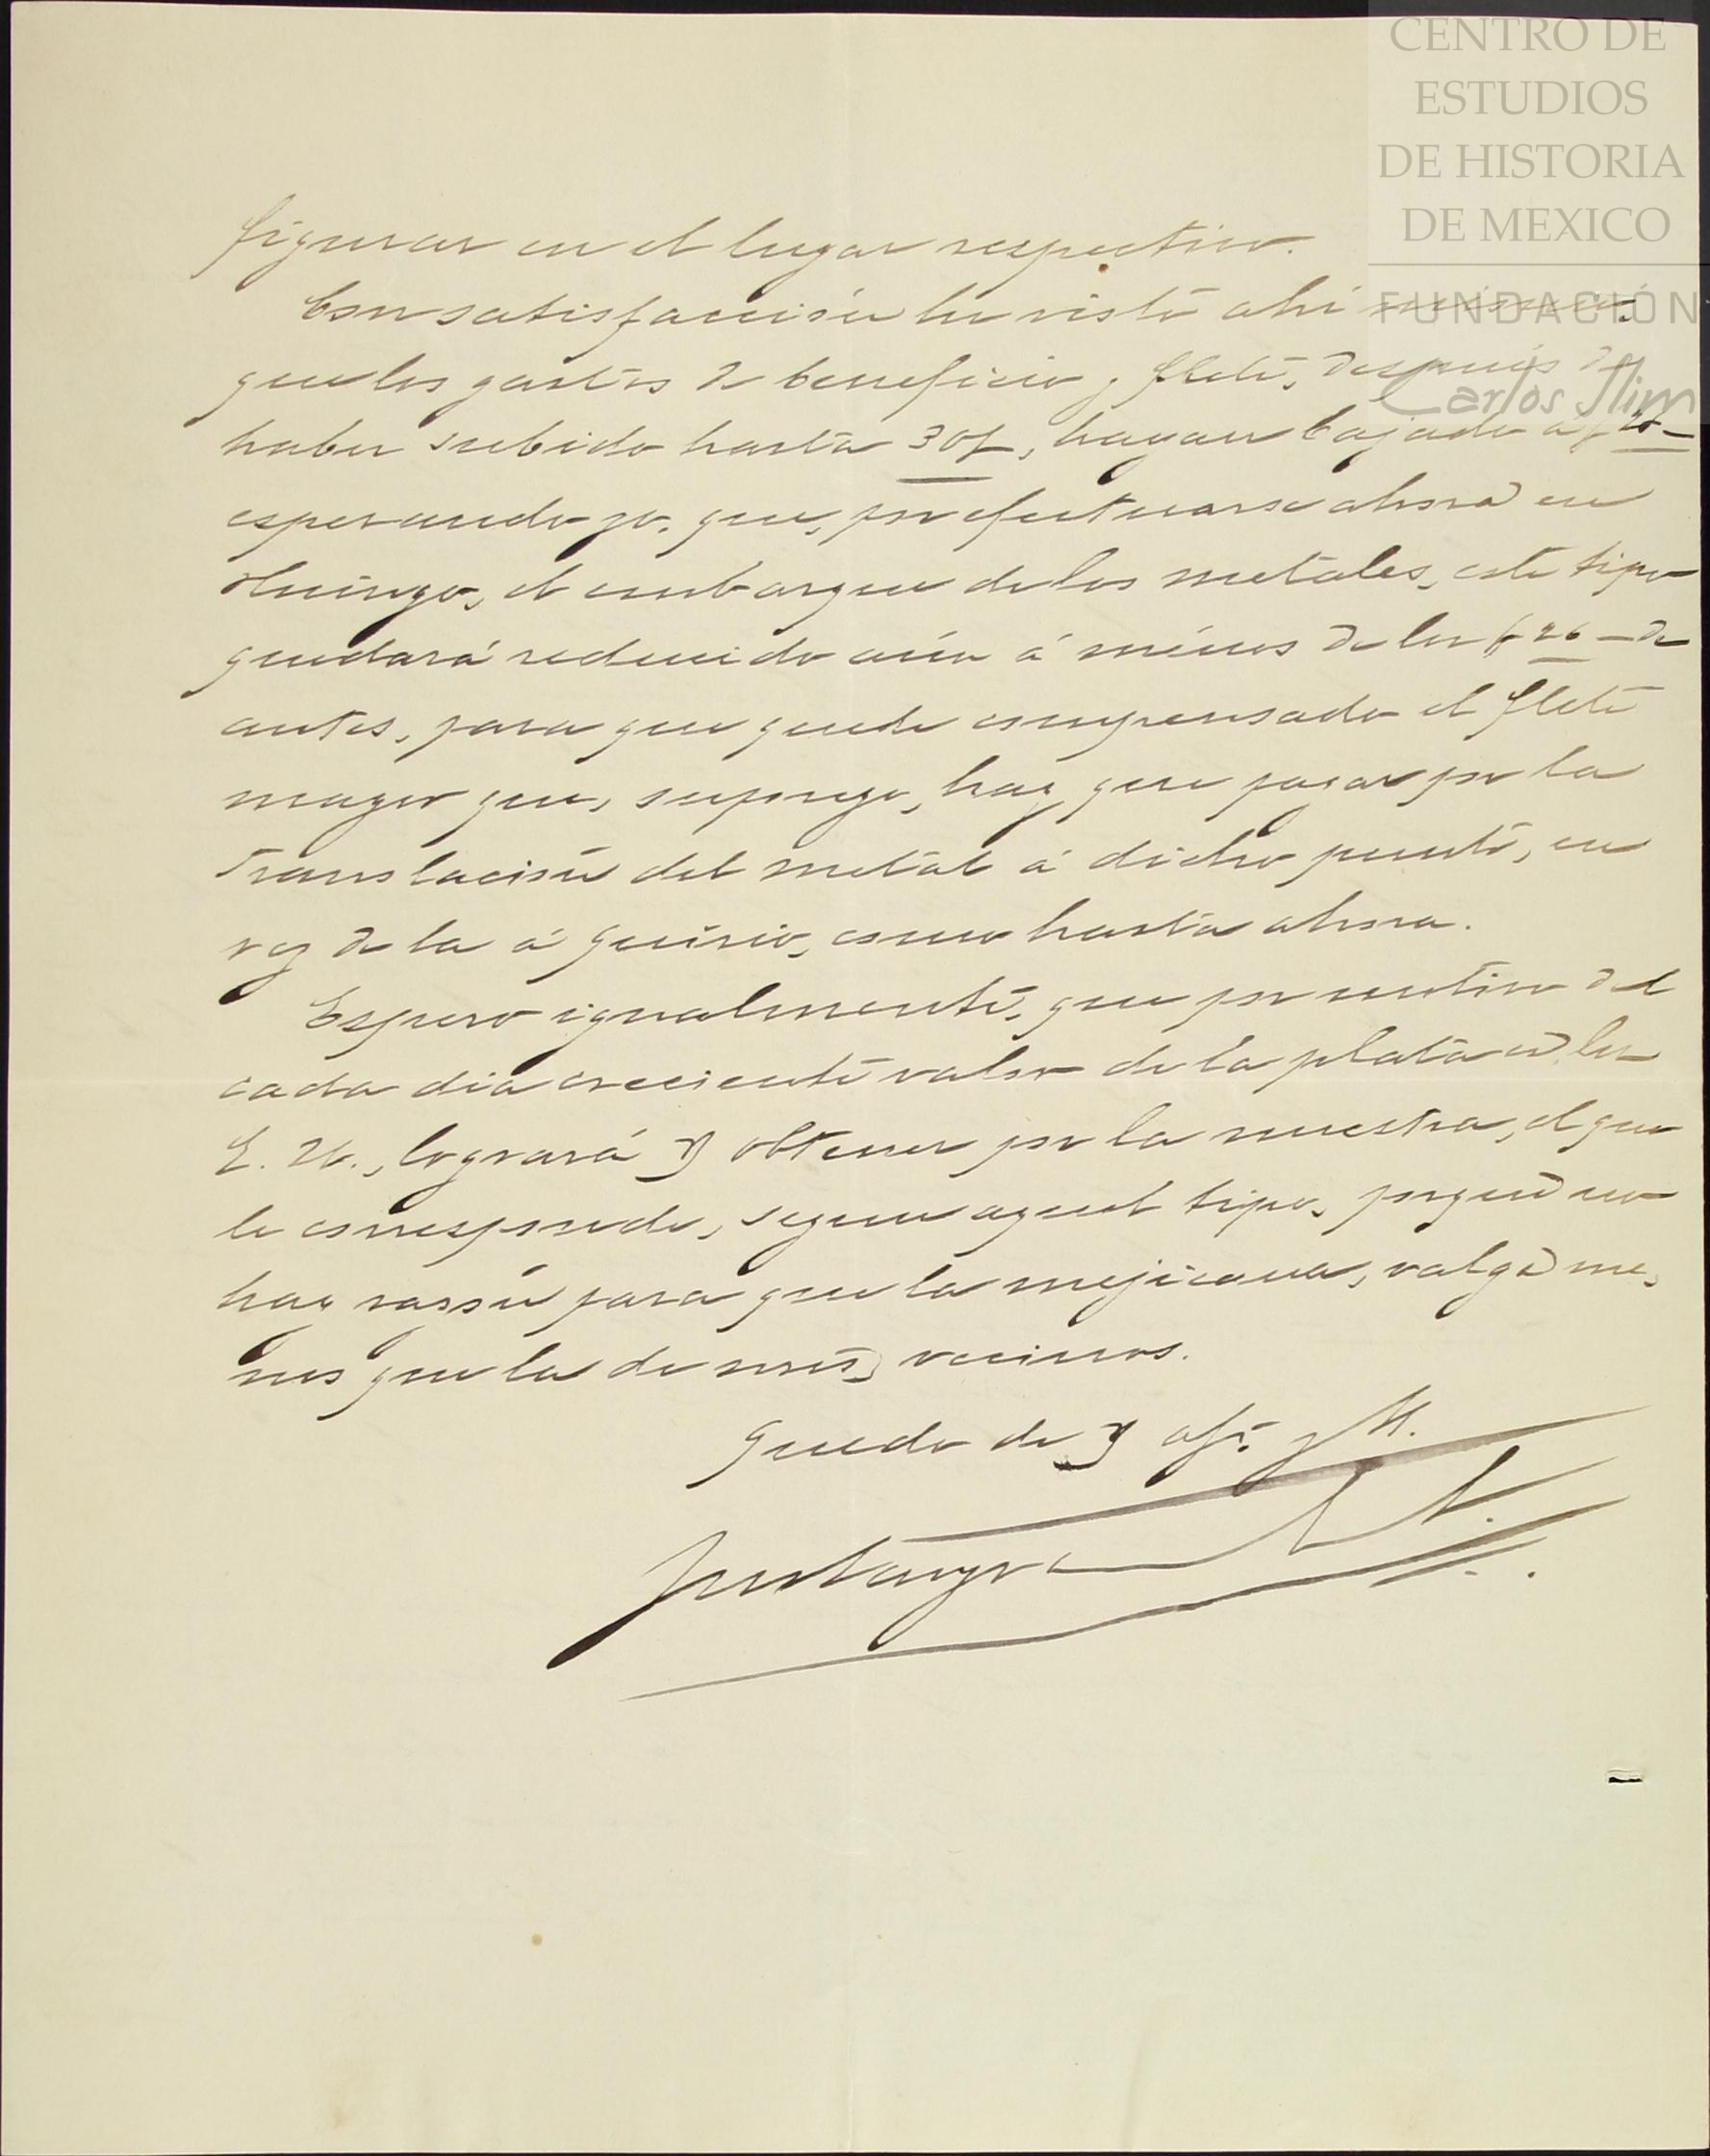 CENTRO DE
ESTUDIOS
DE HISTORIA
DE MEXICO
FUNDACIÓN
Carlos Slim
figurar en el lugar respectivo.
Con satisfacción he visto ahí
que los gastos de beneficio y flete, después de
haber subido hasta 30, hayan bajado a
esperando yo, que, por efectuarse ahora en
el embarque de los metales, este tipo
quedará reducido aún á ménos de los $26 - de
antes, para que quede compensado el flete
mayor que, supongo, hay que pagar por la
translación del metal á dicho punto, en
vez de la á como hasta ahora.
Espero igualmente, que por motivo del
cada dia creciente valor de la plata en los
E. U., logrará V obtener por la nuestra, el que
le corresponde, segun aquel tipo, porque no
hay razón para que la mejicana, valga me-
nos que la de nros vecinos.
Quedo de V afo. y